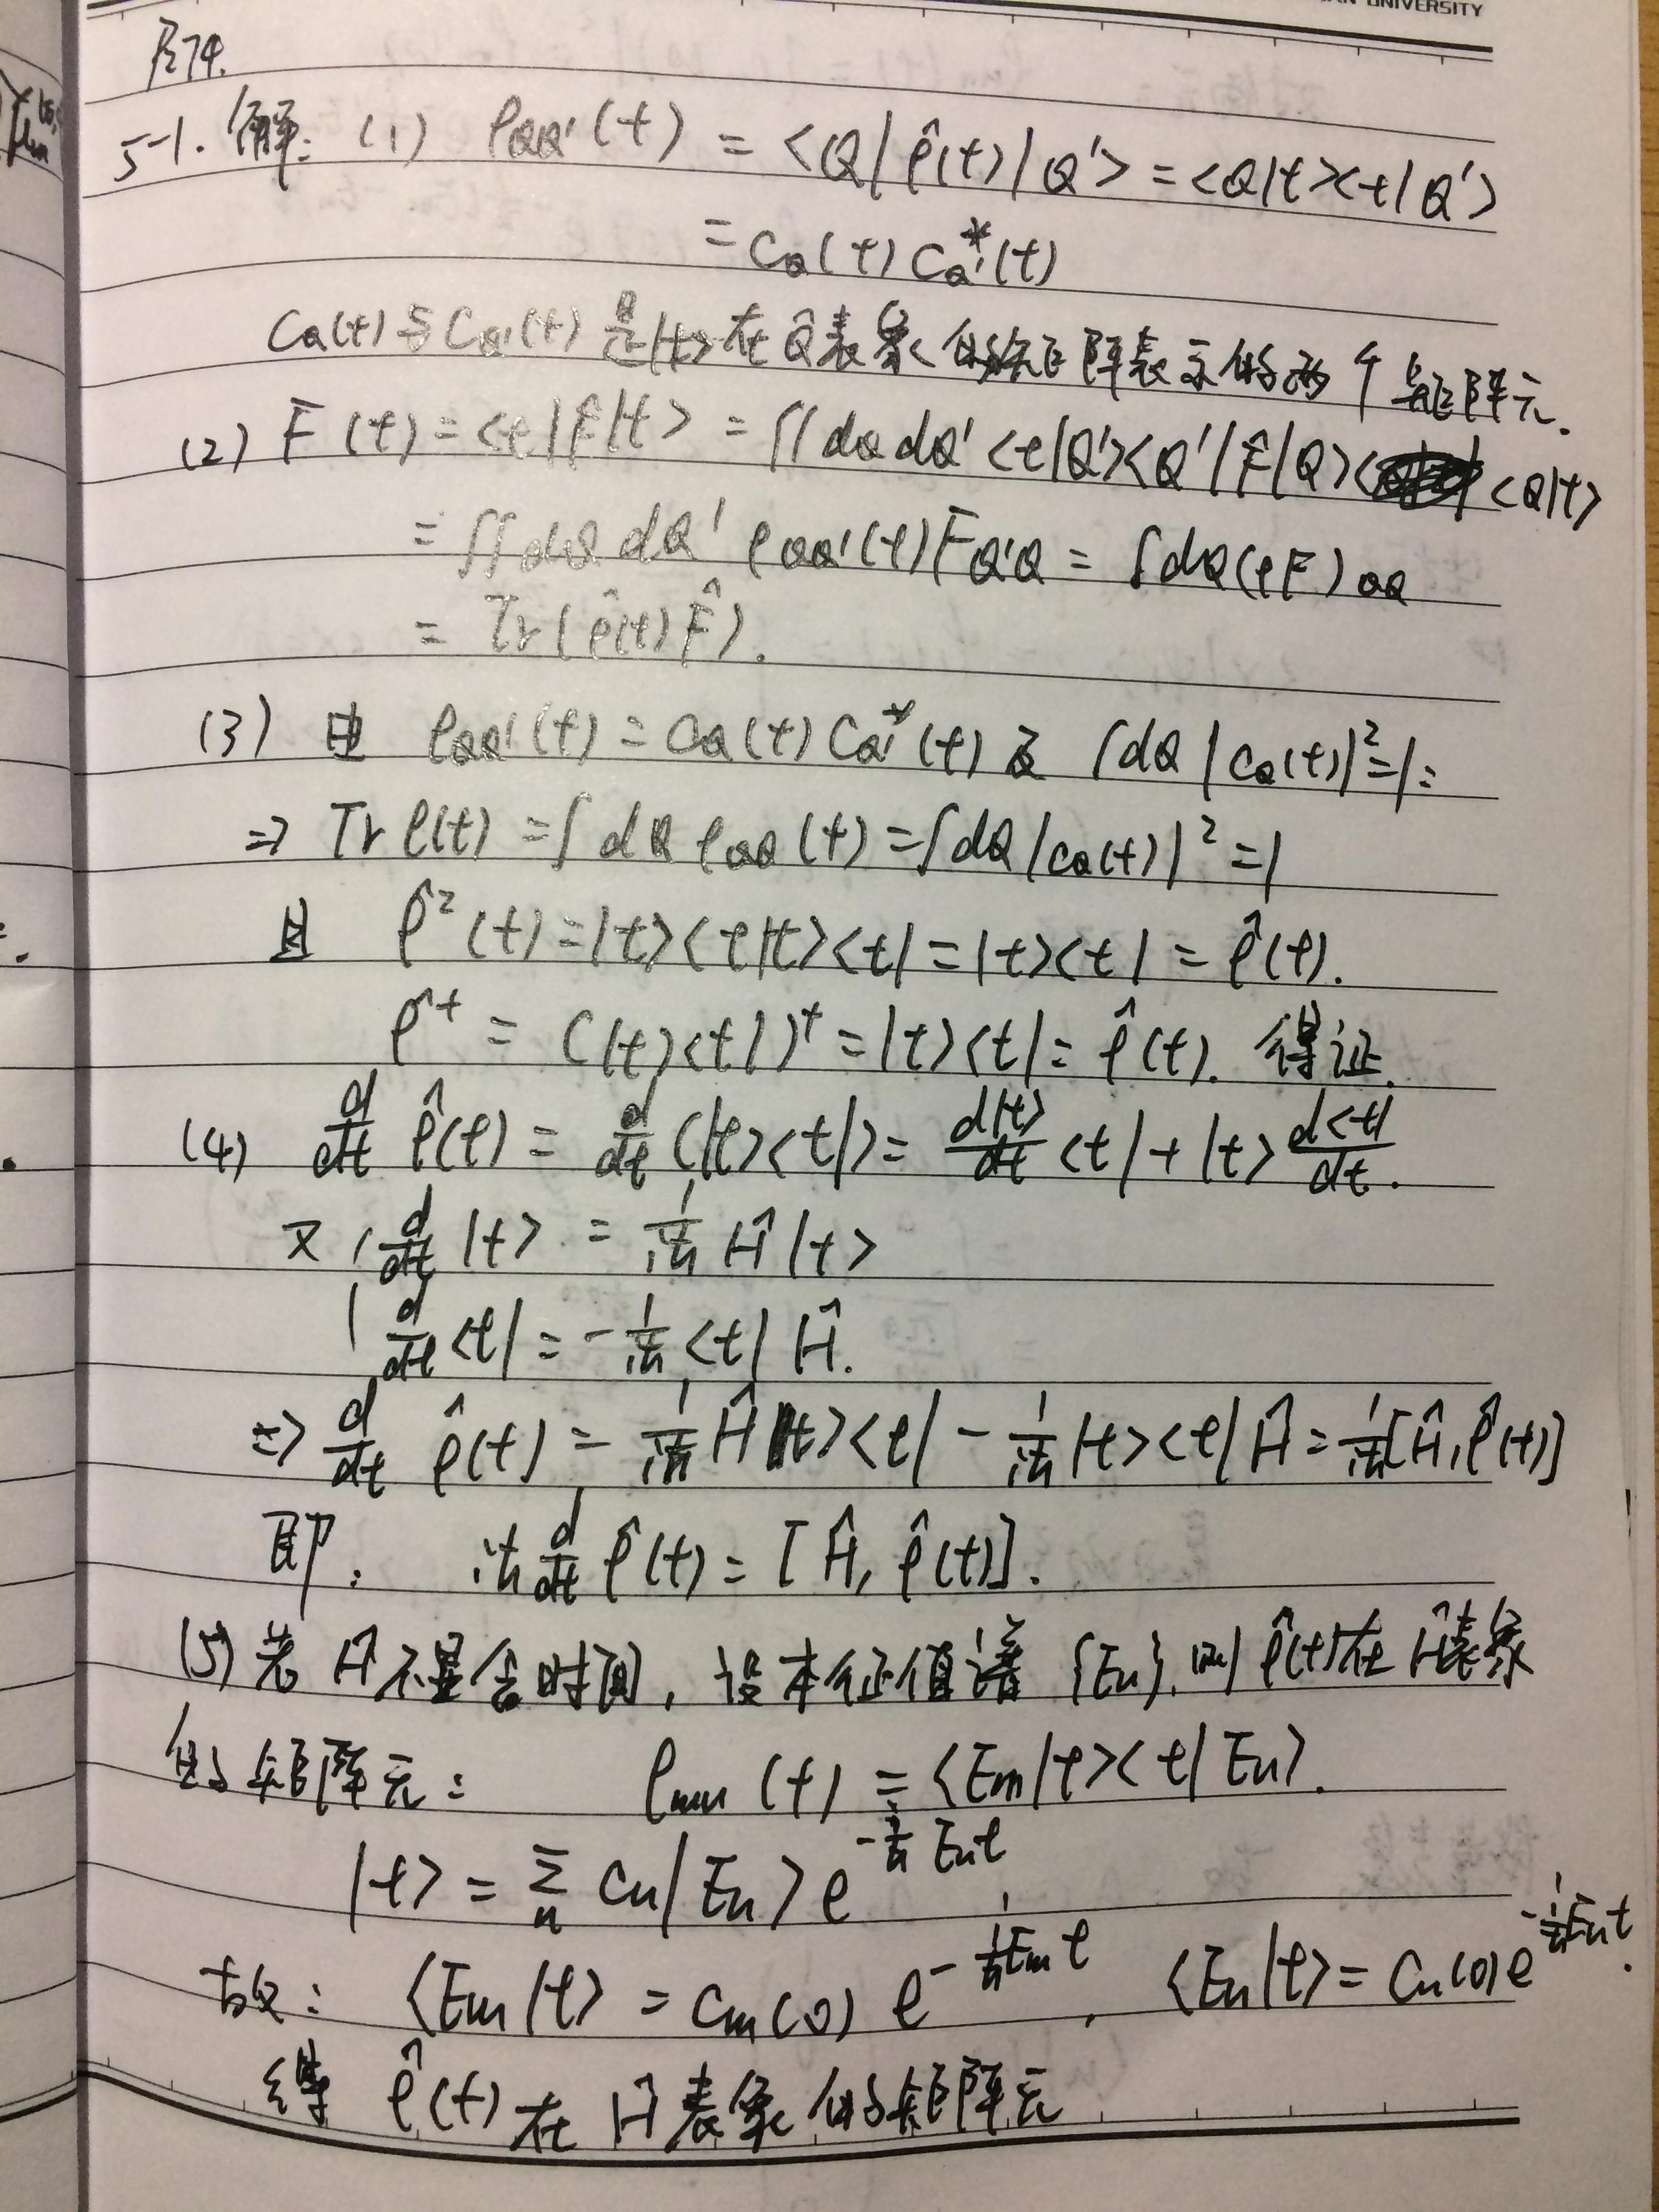 UNIVERSITY
P274.
5-1. 解: (1) ρQQ'(t) = <Q|ρ̂(t)|Q'> = <Q|t><t|Q'>
= CQ(t) CQ'*(t)
CQ(t)与CQ'(t)是|t>在Q̂表象的矩阵表示的两个矩阵元.
(2) F̄(t) = <t|F̂|t> = ∬dQdQ' <t|Q'><Q'|F̂|Q> <Q|t>
= ∬dQ dQ' ρQQ'(t)FQ'Q = ∫dQ(ρF)QQ
= Tr(ρ̂(t)F̂).
(3) 由 ρQQ'(t) = CQ(t) CQ'*(t) 及 ∫dQ |CQ(t)|²=1:
⇒ Tr ρ(t) = ∫dQ ρQQ(t) = ∫dQ|CQ(t)|² = 1
且 ρ̂²(t) = |t><t|t><t| = |t><t| = ρ̂(t).
ρ̂⁺ = (|t><t|)⁺ = |t><t| = ρ̂(t). 得证.
(4) d/dt ρ̂(t) = d/dt (|t><t|) = d|t>/dt <t| + |t> d<t|/dt.
又 { d/dt |t> = 1/iħ Ĥ|t>
d/dt <t| = -1/iħ <t|Ĥ.
⇒ d/dt ρ̂(t) = 1/iħ Ĥ|t><t| - 1/iħ |t><t|Ĥ = 1/iħ[Ĥ,ρ̂(t)]
即: iħ d/dt ρ̂(t) = [Ĥ, ρ̂(t)].
(5) 若 Ĥ不显含时间, 设本征值谱 {En}, 则 ρ̂(t)在Ĥ表象
的矩阵元: ρmn(t) = <Em|t><t|En>.
|t> = Σn Cn|En> e^(-i/ħ Ent)
故: <Em|t> = Cm(0) e^(-i/ħ Emt), <En|t> = Cn(0)e^(-i/ħ Ent).
得 ρ̂(t) 在 Ĥ表象的矩阵元